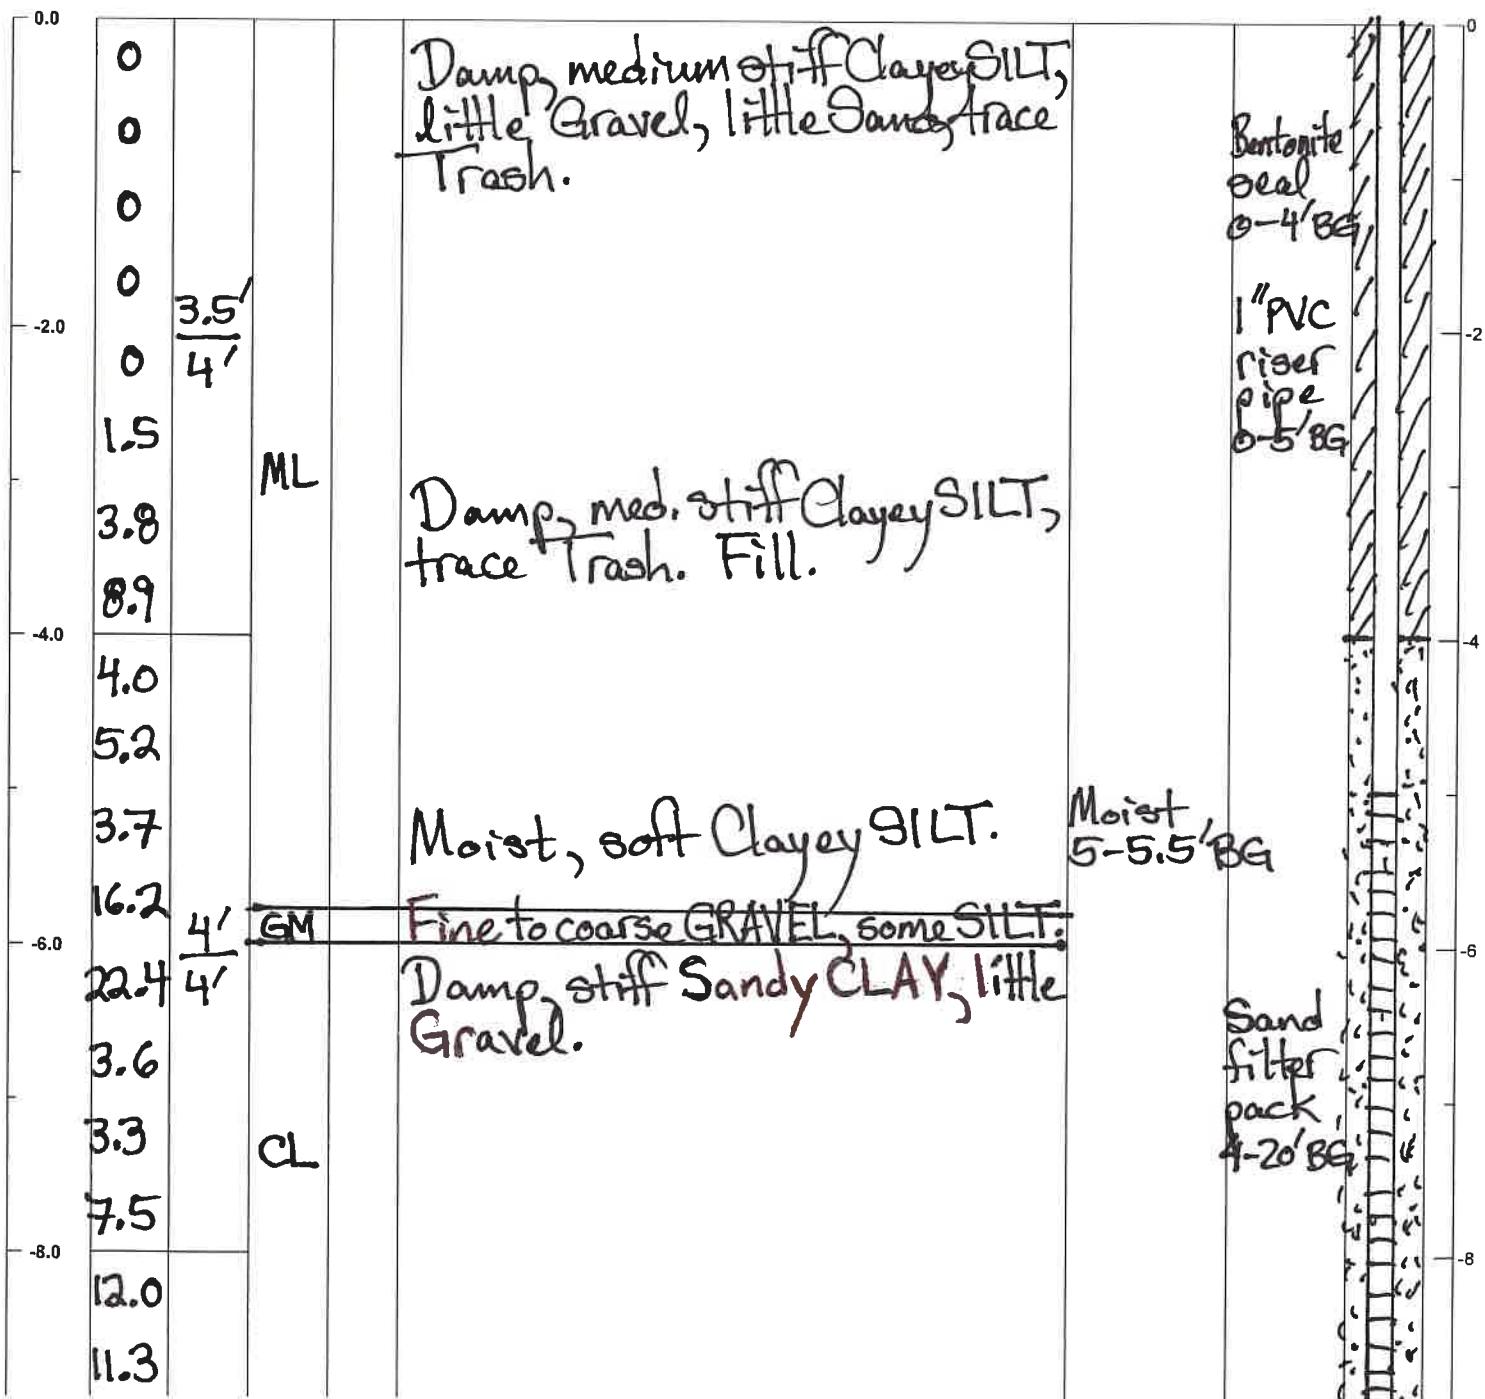 0.0
0
0
0
0
0
1.5
3.8
8.9
-2.0
-4.0
4.0
5.2
3.7
16.2
22.4
3.6
3.3
7.5
-6.0
-8.0
12.0
11.3
3.5'
4'
4'
4'
ML
GM
CL
Damp, medium stiff Clayey SILT,
little Gravel, little Sand, trace
Trash.
Damp, med. stiff Clayey SILT,
trace Trash. Fill.
Moist, soft Clayey SILT.
Fine to coarse GRAVEL, some SILT.
Damp, stiff Sandy CLAY, little
Gravel.
Moist
5-5.5' BG
Bentonite
seal
0-4' BG
1" PVC
riser
pipe
0-5' BG
Sand
filter
pack
4-20' BG
0
-2
-4
-6
-8